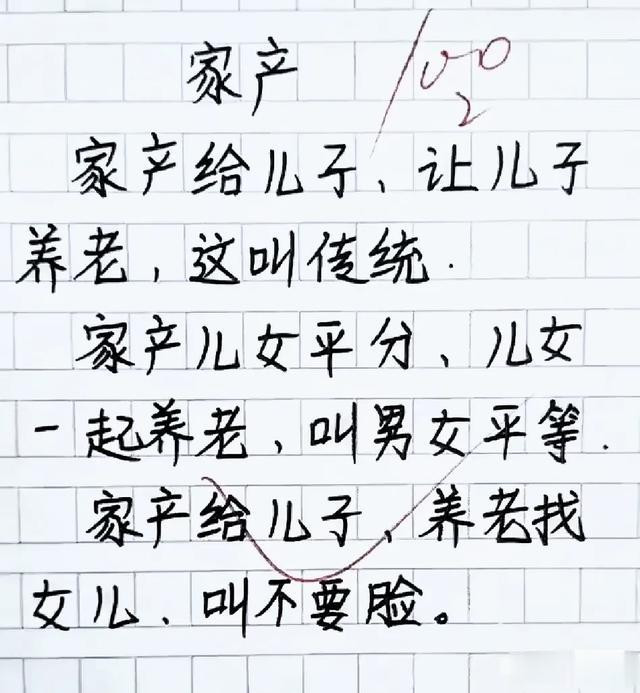 家产
100
2
家产给儿子、让儿子
养老，这叫传统.
家产儿女平分、儿女
一起养老，叫男女平等.
家产给儿子，养老找
女儿、叫不要脸。